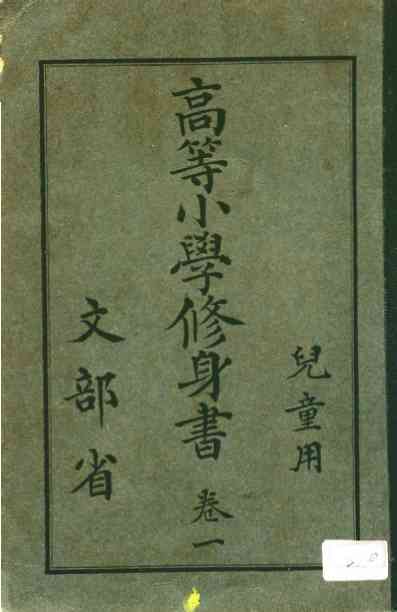 兒童用
高等小學修身書 卷一
文部省